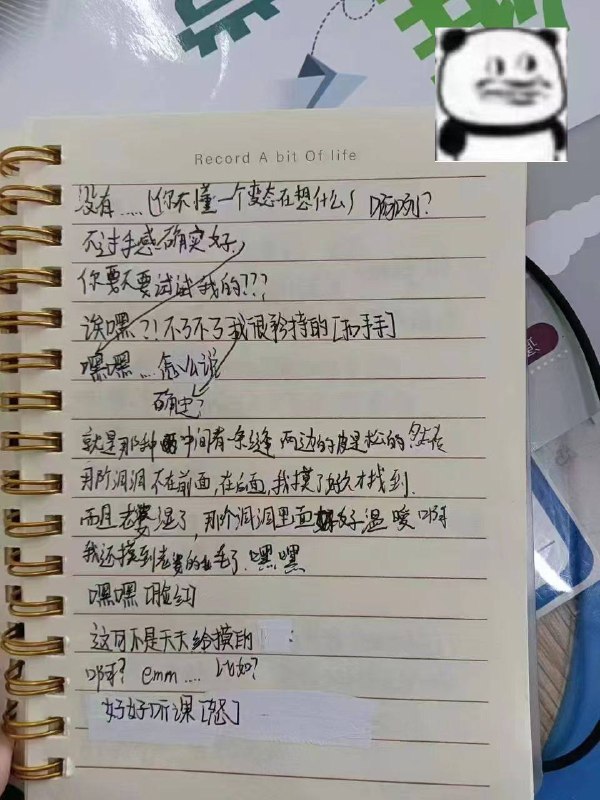 Record A bit Of life
没有.....(你不懂一个变态在想什么)
不过手感确实好
你要不要试试我的???
诶嘿?!不了不了我很矜持的[扣手手]
嘿嘿....怎么说
就是那种中间有一条缝 两边的皮是松的
那个洞洞不在前面,在后面,我摸了好久才找到.
而且老婆湿了,那个洞洞里面好温暖啊
我还摸到老婆的毛了.嘿嘿
嘿嘿[脸红]
这可不是天天给摸的
啊? emm.... 比如?
好好听课[怒]